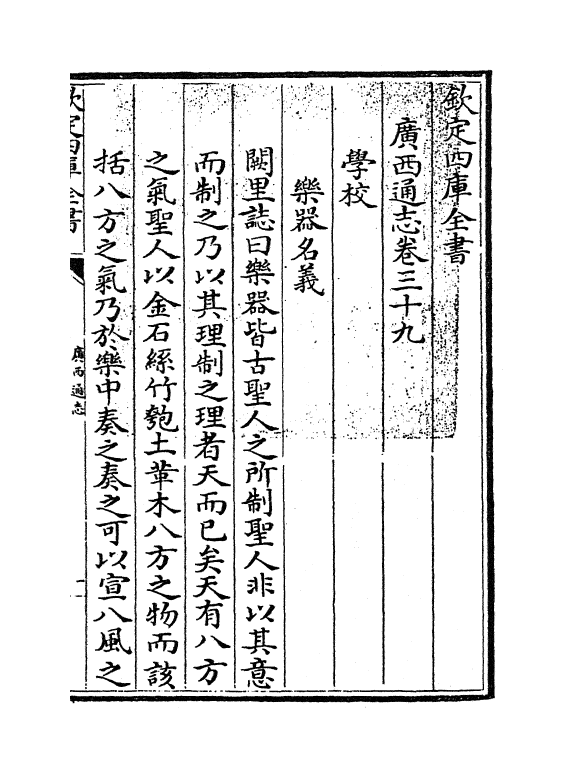 欽定四庫全書
廣西通志卷三十九
學校
樂器名義
闕里誌曰樂器皆古聖人之所制聖人非以其意
而制之乃以其理制之理者天而已矣天有八方
之氣聖人以金石絲竹匏土革木八方之物而該
括八方之氣乃於樂中奏之奏之可以宣八風之
欽定四庫全書
廣西通志
一